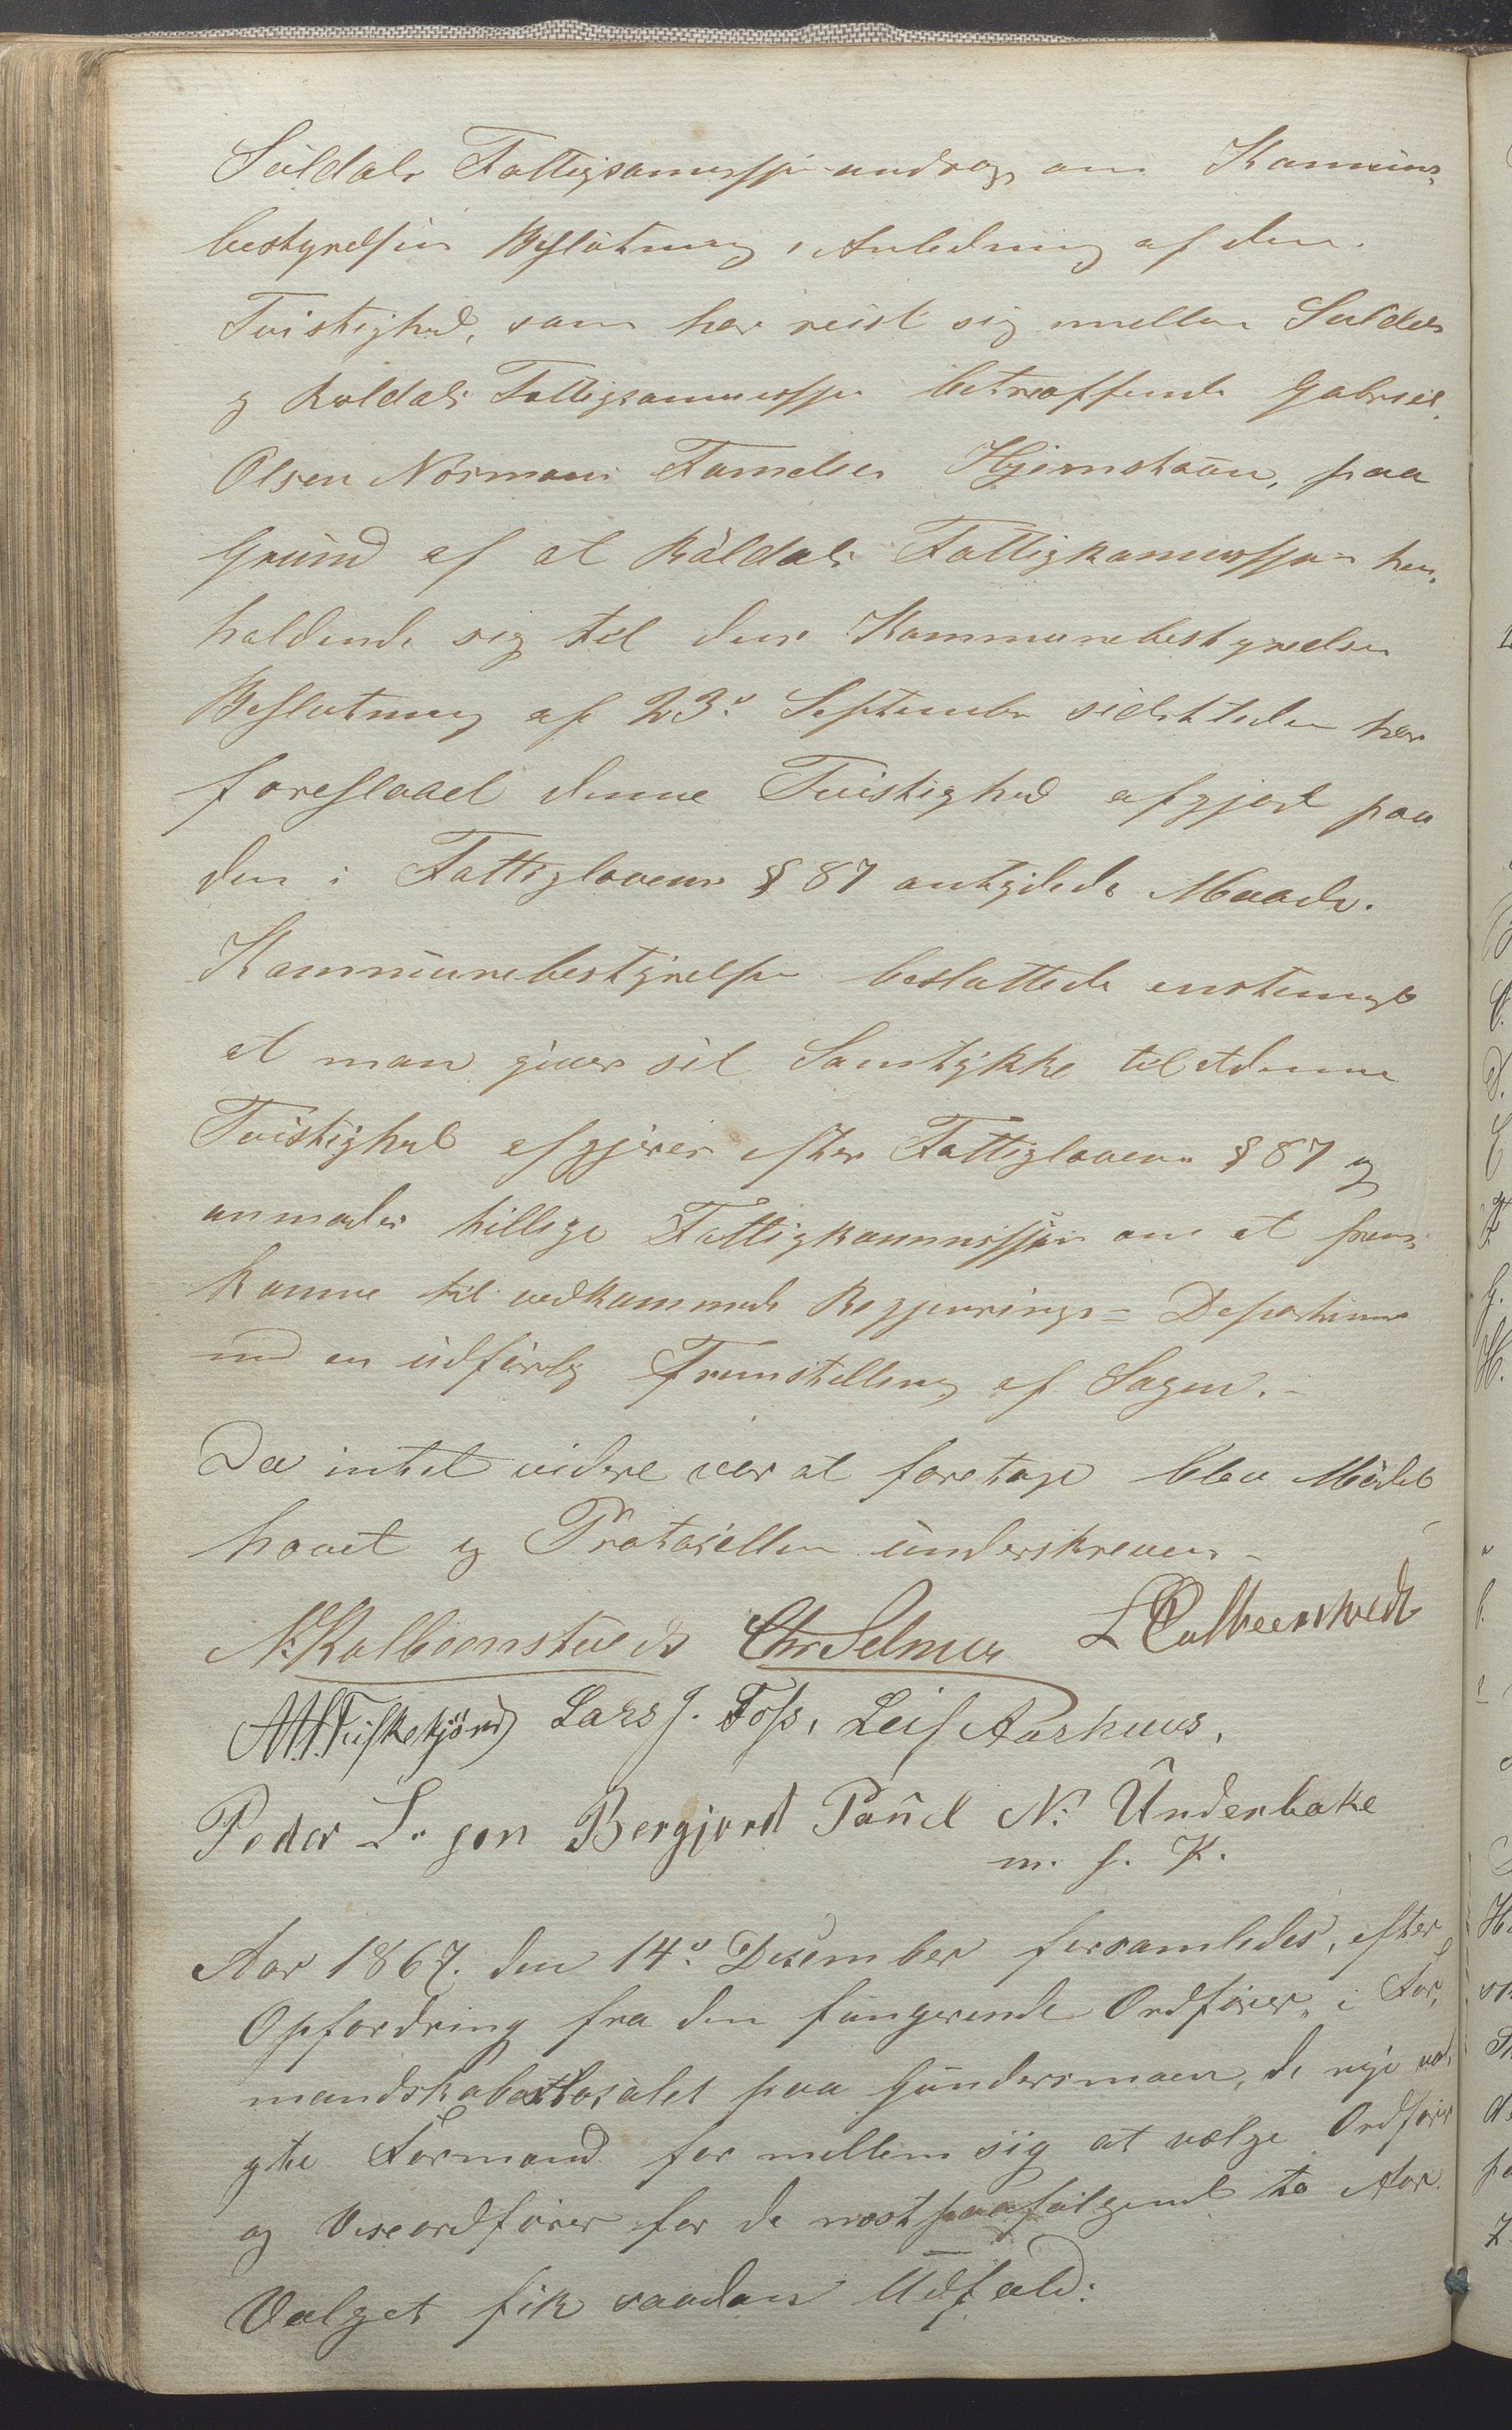 Suldals Fattigkomission androg om Kommune-
bestyrelsens Beslutning i Anledning af den
Tvistighed, som har reist sig mellem Suldals
og Røldals Fattigkommission betræffende Gabriel
Olsen Normans Families Hjemstavn, paa
Grund af at Røldals Fattigkommission hen-
holdende sig til den Kommunebestyrelses
Beslutning af 23de September sidstleden har
foreslaaet denne Tvistighed afgjort paa
den i Fattiglovens § 87 antydede Maade.
Kommunebestyrelsen besluttede enstemmigt
at man giver sit Samtykke til at denne
Tvistighed afgjøres efter Fattiglovens § 87 og
anmoder tillige Fattigkommissionen om at frem-
komme til vedkommende Regjerings-Departement
med en udførlig Fremstilling af Sagen.-
Da intet videre var at foretage blev Mødet
hævet og Protocollen underskreven-
N. Kolbeenstvedt Chr Selmer L Colbeenstvedt
M. H. Fiskekjønn Lars J. Foss, Leif Aarhuus,
Peder L. sen Bergjord Poul N. Underbake
m. f. P.
Aar 1867. den 14de Desember forsamledes, efter
Opfordring fra den fungerende Ordfører, i For-
mandskabslokalet paa Gundersmoen, de nye val-
gte Formænd for mellem sig at vælge Ordfører
og Viseordfører for de næstpaafølgende to Aar.
Valget fik saadan Udfald: